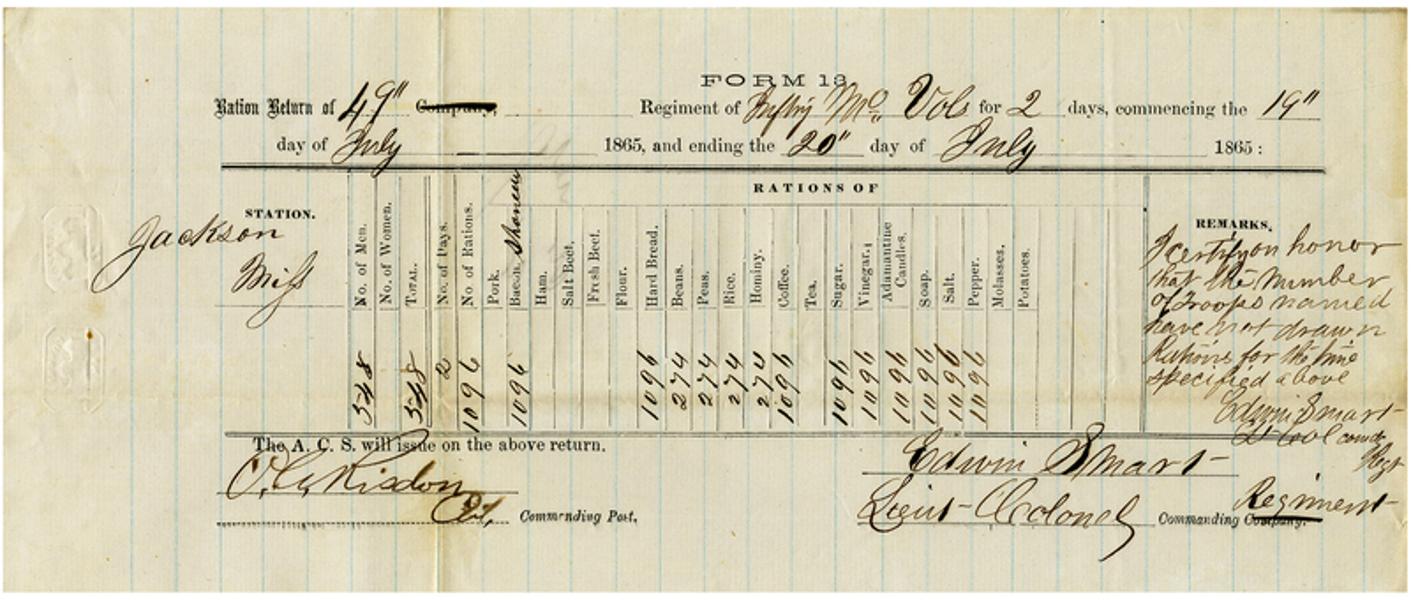 FORM 13.
Ration Return of 49" Company, Regiment of Inftry Mo. Vols for 2 days, commencing the 19"
day of July 1865, and ending the 20" day of July 1865:
RATIONS OF
STATION.
No. of Men.
No. of Women.
TOTAL.
No. of Days.
No. of Rations.
Pork.
Bacon.
Ham.
Salt Beef.
Fresh Beef.
Flour.
Hard Bread.
Beans.
Peas.
Rice.
Hominy.
Coffee.
Tea.
Sugar.
Vinegar.
Adamantine Candles.
Soap.
Salt.
Pepper.
Molasses.
Potatoes.
REMARKS.
Jackson
Miss
548
548
2
1096
1096
1096
274
274
274
274
1096
1096
1096
1096
1096
1096
1096
I certify on honor
that the number
of Troops named
have not drawn
Rations for the time
specified above
Edwin Smart
Lt Col comdg
Regt
The A. C. S. will issue on the above return.
Risdon
Col, Commanding Post.
Edwin Smart
Lieut Colonel Commanding Company. Regiment